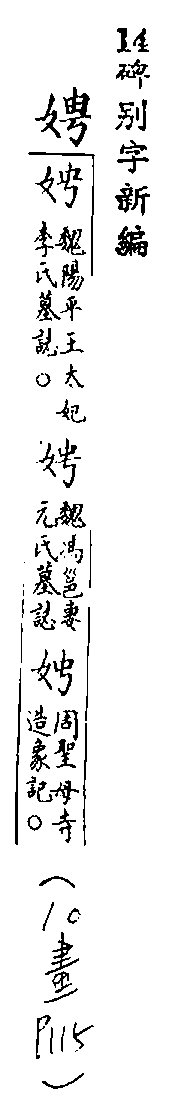 14碑別字新編
娉
娉 魏陽平王太妃
李氏墓誌。
娉 魏馮邕妻
元氏墓誌
娉 周聖母寺
造象記。
(10畫 P115)